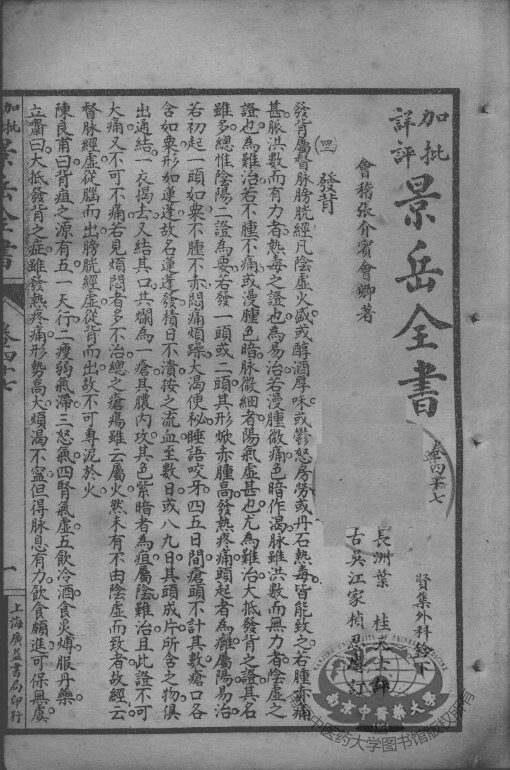 加批
詳評
景岳全書
卷四十七
賢集外科鈐下
會稽張介賓會卿著
長洲葉桂天士評
古吳江家楨
㈣發背
發背屬督脉膀胱經凡陰虛火盛或醇酒厚味或鬱怒房勞或丹石熱毒皆能致之若腫赤痛
甚脈洪數而有力者熱毒之證也為易治若漫腫微痛色暗作渴脉雖洪數而無力者陰虛之
證也為難治若不腫不痛或漫腫色暗脉微細者陽氣虛甚也尤為難治大抵發背之證其名
雖多總惟陰陽二證為要若發一頭或二頭其形焮赤腫高發熱疼痛頭起者為癰屬陽易治
若初起一頭如粟不腫不赤悶痛煩躁大渴便秘睡語咬牙四五日間瘡頭不計其數瘡口各
含如粟形如蓮蓬故名蓮蓬發積日不潰按之流血至數日或八九日其頭成片所含之物俱
出通結一衣揭去又結其口共爛為一瘡其膿內攻其色紫暗者為疽屬陰難治且此證不可
大痛又不可不痛若見煩悶者多不治總之瘡瘍雖云屬火然未有不由陰虛而致者故經云
督脉經虛從腦而出膀胱經虛從背而出故不可專泥於火
陳良甫曰背疽之源有五一天行二瘦弱氣滯三怒氣四腎氣虛五飲冷酒食炙煿服丹藥
立齋曰大抵發背之症雖發熱疼痛形勢高大煩渴不寧但得脉息有力飲食頗進可保無虞
加批景岳全書
卷四十七
一
上海廣益書局印行
南京中醫藥大學
中医药大学图书馆版权所有